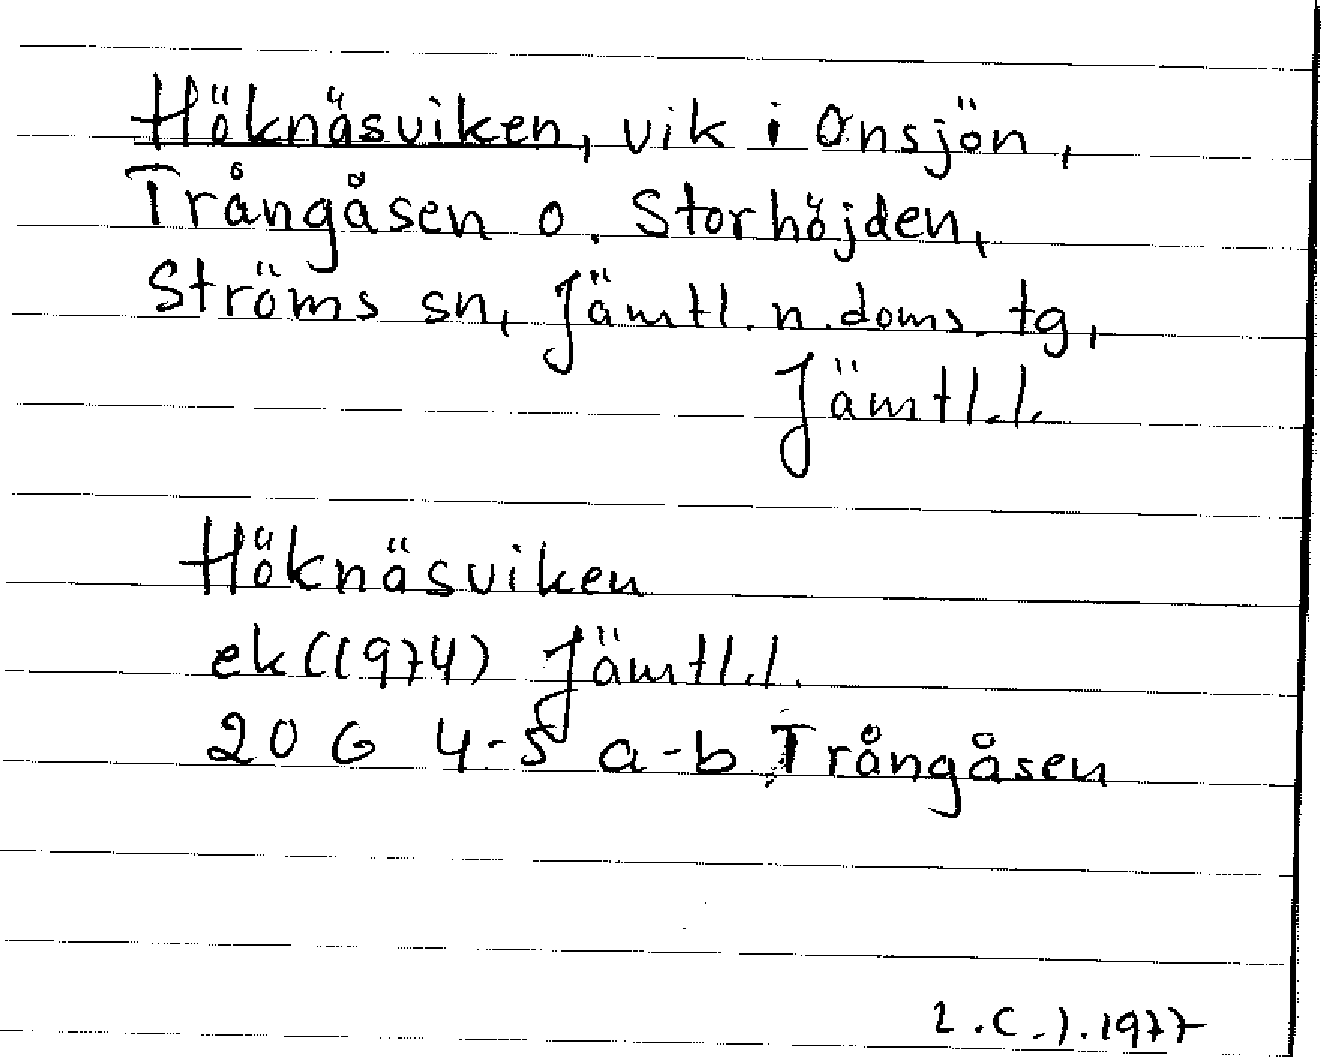 Höknäsviken, vik i Onsjön,
Trångåsen o. Storhöjden,
Ströms sn, Jämtl. n. doms. tg,
Jämtl. l.
Höknäsviken
ek (1974) Jämtl. l.
20 G 4-5 a-b Trångåsen
1977